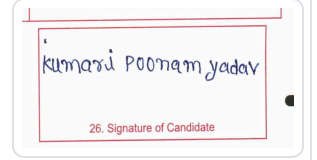 kumari poonam yadav
26. Signature of Candidate